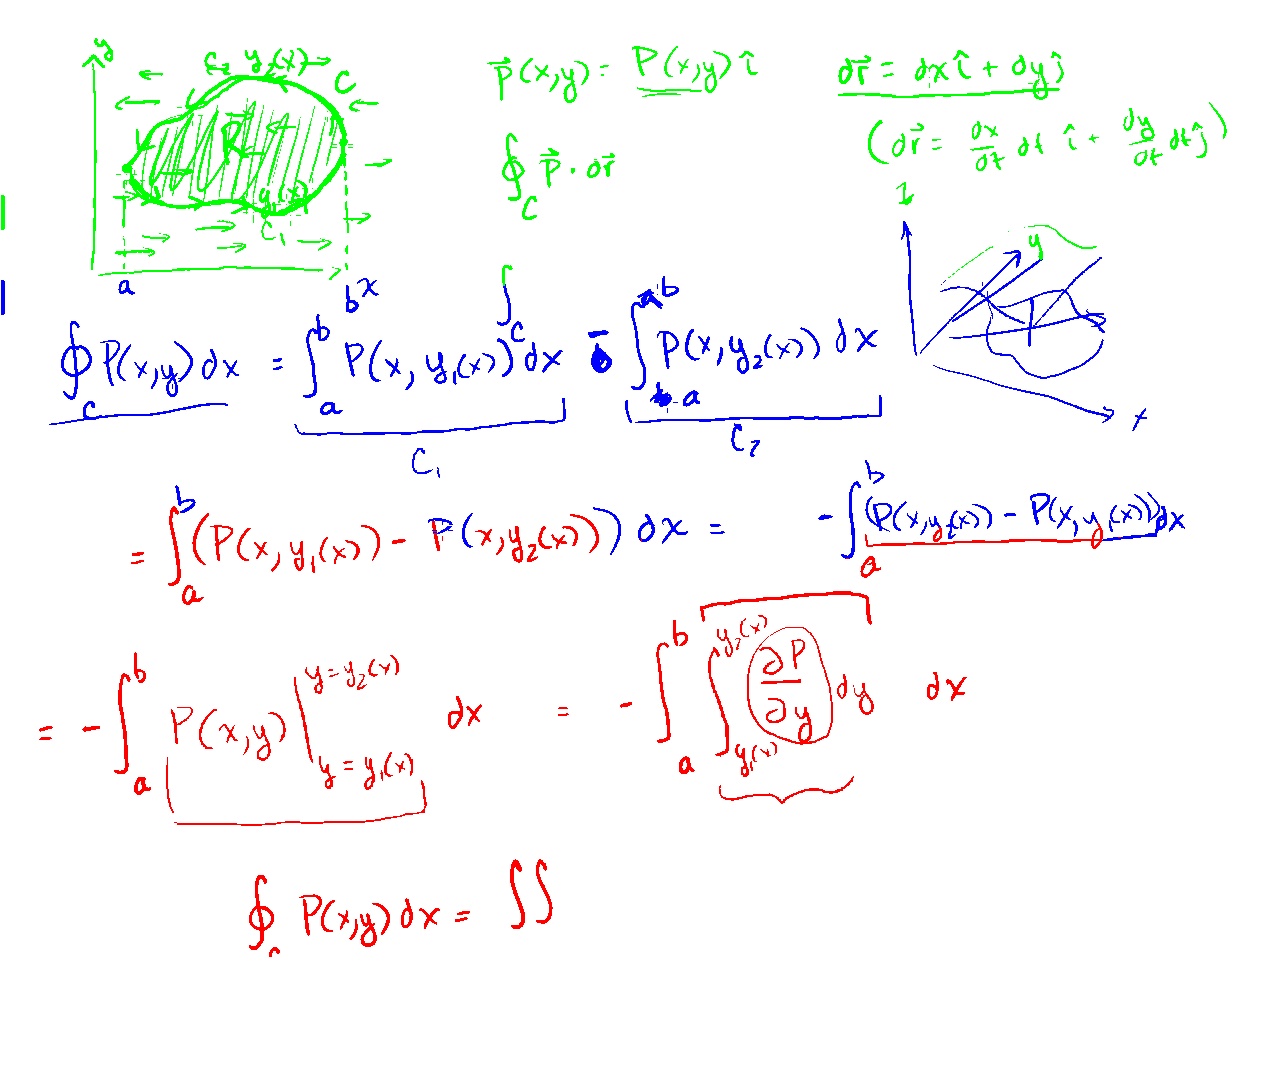 y
C₂ y₂(x)
C
R
y₁(x)
C₁
a
b x
p⃗(x,y) = P(x,y) î
dr⃗ = dx î + dy ĵ
(dr⃗ = dx/dt dt î + dy/dt dt ĵ)
∮_C p⃗ · dr⃗
∫_C
z
y
x
∮_C P(x,y) dx = ∫_a^b P(x, y₁(x)) dx - ∫_a^b P(x, y₂(x)) dx
C₁
C₂
= ∫_a^b (P(x, y₁(x)) - P(x, y₂(x))) dx = - ∫_a^b (P(x, y₂(x)) - P(x, y₁(x))) dx
= - ∫_a^b P(x,y) |_{y = y₁(x)}^{y = y₂(x)} dx = - ∫_a^b ∫_{y₁(x)}^{y₂(x)} ∂P/∂y dy dx
∮_c P(x,y) dx = ∫∫